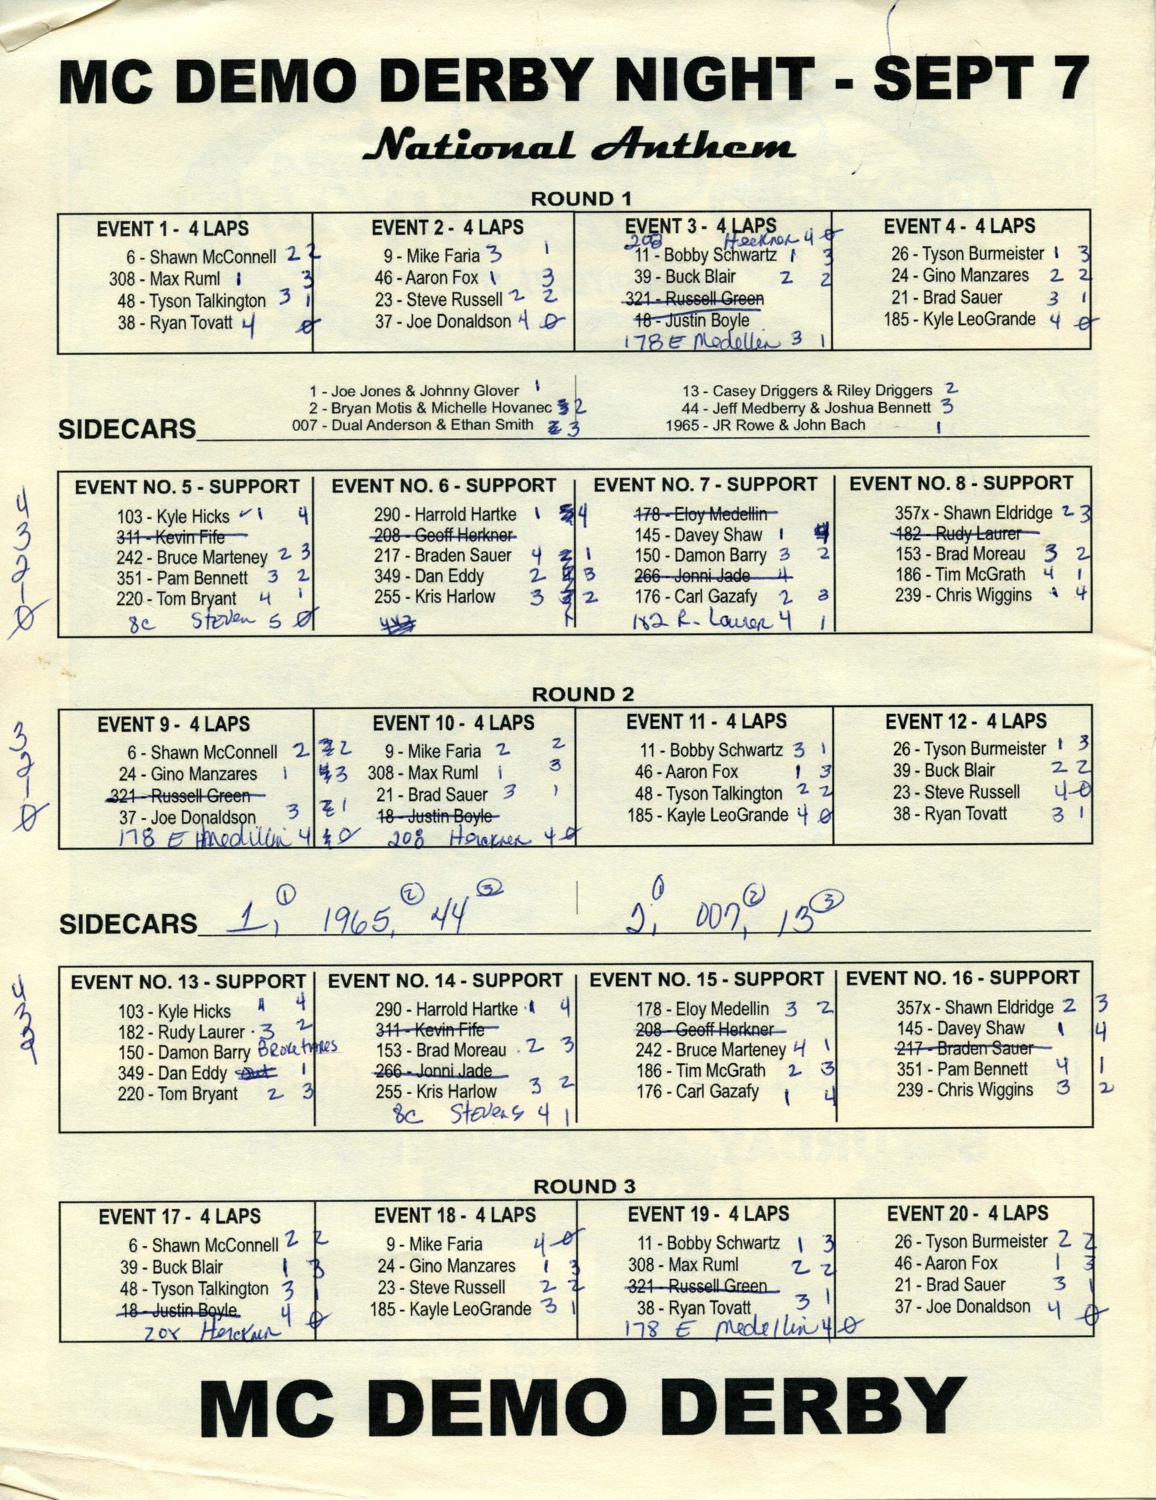 MC DEMO DERBY NIGHT - SEPT 7
National Anthem
ROUND 1
EVENT 1 - 4 LAPS
6 - Shawn McConnell 2 2
308 - Max Ruml 1 3
48 - Tyson Talkington 3 1
38 - Ryan Tovatt 4 0
EVENT 2 - 4 LAPS
9 - Mike Faria 3 1
46 - Aaron Fox 1 3
23 - Steve Russell 2 2
37 - Joe Donaldson 4 0
EVENT 3 - 4 LAPS
208 Herkner 4 0
11 - Bobby Schwartz 1 3
39 - Buck Blair 2 2
321 - Russell Green
18 - Justin Boyle
178 E Medellin 3 1
EVENT 4 - 4 LAPS
26 - Tyson Burmeister 1 3
24 - Gino Manzares 2 2
21 - Brad Sauer 3 1
185 - Kyle LeoGrande 4 0
SIDECARS
1 - Joe Jones & Johnny Glover 1
2 - Bryan Motis & Michelle Hovanec 2
007 - Dual Anderson & Ethan Smith 3
13 - Casey Driggers & Riley Driggers 2
44 - Jeff Medberry & Joshua Bennett 3
1965 - JR Rowe & John Bach 1
4 3 2 0
EVENT NO. 5 - SUPPORT
103 - Kyle Hicks 1 4
311 - Kevin Fife
242 - Bruce Marteney 2 3
351 - Pam Bennett 3 2
220 - Tom Bryant 4 1
8c Steven 5 0
EVENT NO. 6 - SUPPORT
290 - Harrold Hartke 1 4
208 - Geoff Herkner
217 - Braden Sauer 4 1
349 - Dan Eddy 2 3
255 - Kris Harlow 3 2
EVENT NO. 7 - SUPPORT
178 - Eloy Medellin
145 - Davey Shaw 1 4
150 - Damon Barry 3 2
266 - Jonni Jade 4
176 - Carl Gazafy 2 3
182 R. Laurer 4 1
EVENT NO. 8 - SUPPORT
357x - Shawn Eldridge 2 3
182 - Rudy Laurer
153 - Brad Moreau 3 2
186 - Tim McGrath 4 1
239 - Chris Wiggins 1 4
ROUND 2
3 2 0
EVENT 9 - 4 LAPS
6 - Shawn McConnell 2 2
24 - Gino Manzares 1 3
321 - Russell Green
37 - Joe Donaldson 3 1
178 E Medillin 4 0
EVENT 10 - 4 LAPS
9 - Mike Faria 2 2
308 - Max Ruml 1 3
21 - Brad Sauer 3 1
18 - Justin Boyle
208 Herckner 4 0
EVENT 11 - 4 LAPS
11 - Bobby Schwartz 3 1
46 - Aaron Fox 1 3
48 - Tyson Talkington 2 2
185 - Kayle LeoGrande 4 0
EVENT 12 - 4 LAPS
26 - Tyson Burmeister 1 3
39 - Buck Blair 2 2
23 - Steve Russell 4 0
38 - Ryan Tovatt 3 1
SIDECARS 1, 1 1965, 2 44 3 2, 1 007, 2 13 3
4 3 2
EVENT NO. 13 - SUPPORT
103 - Kyle Hicks 1 4
182 - Rudy Laurer 3 2
150 - Damon Barry
349 - Dan Eddy 1
220 - Tom Bryant 2 3
EVENT NO. 14 - SUPPORT
290 - Harrold Hartke 1 4
311 - Kevin Fife
153 - Brad Moreau 2 3
266 - Jonni Jade
255 - Kris Harlow 3 2
8c Stevens 4 1
EVENT NO. 15 - SUPPORT
178 - Eloy Medellin 3 2
208 - Geoff Herkner
242 - Bruce Marteney 4 1
186 - Tim McGrath 2 3
176 - Carl Gazafy 1 4
EVENT NO. 16 - SUPPORT
357x - Shawn Eldridge 2 3
145 - Davey Shaw 1 4
217 - Braden Sauer
351 - Pam Bennett 4 1
239 - Chris Wiggins 3 2
ROUND 3
EVENT 17 - 4 LAPS
6 - Shawn McConnell 2 2
39 - Buck Blair 1 3
48 - Tyson Talkington 3 1
18 - Justin Boyle 4 0
208 Herckner
EVENT 18 - 4 LAPS
9 - Mike Faria 4 0
24 - Gino Manzares 1 3
23 - Steve Russell 2 2
185 - Kayle LeoGrande 3 1
EVENT 19 - 4 LAPS
11 - Bobby Schwartz 1 3
308 - Max Ruml 2 2
321 - Russell Green
38 - Ryan Tovatt 3 1
178 E Medellin 4 0
EVENT 20 - 4 LAPS
26 - Tyson Burmeister 2 2
46 - Aaron Fox 1 3
21 - Brad Sauer 3 1
37 - Joe Donaldson 4 0
MC DEMO DERBY